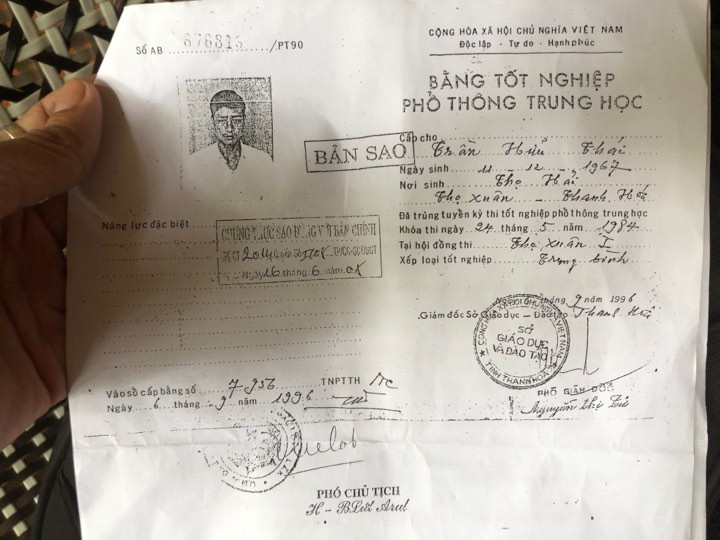 Số AB 676813 /PT90
CỘNG HÒA XÃ HỘI CHỦ NGHĨA VIỆT NAM
Độc lập - Tự do - Hạnh phúc
BẰNG TỐT NGHIỆP
PHỔ THÔNG TRUNG HỌC
BẢN SAO
Cấp cho Trần Hữu Thái
Ngày sinh 11 - 12 - 1967
Nơi sinh Thọ Hải
Thọ Xuân - Thanh Hoá
Đã trúng tuyển kỳ thi tốt nghiệp phổ thông trung học
Khóa thi ngày 24 tháng 5 năm 1984
Tại hội đồng thi Thọ Xuân I
Xếp loại tốt nghiệp Trung bình
tháng 9 năm 1996
Giám đốc Sở Giáo dục - Đào tạo Thanh Hoá
CỘNG HÒA XÃ HỘI CHỦ NGHĨA VIỆT NAM
SỞ
GIÁO DỤC
VÀ ĐÀO TẠO
TỈNH THANH HÓA
PHÓ GIÁM ĐỐC
Nguyễn Thị
Năng lực đặc biệt
CHỨNG THỰC SAO ĐÚNG VỚI BẢN CHÍNH
Ngày 26 tháng 6 năm
Vào sổ cấp bằng số 7956 TNPTTH
Ngày 6 tháng 9 năm 1996
PHÓ CHỦ TỊCH
H - BLƠT Arul